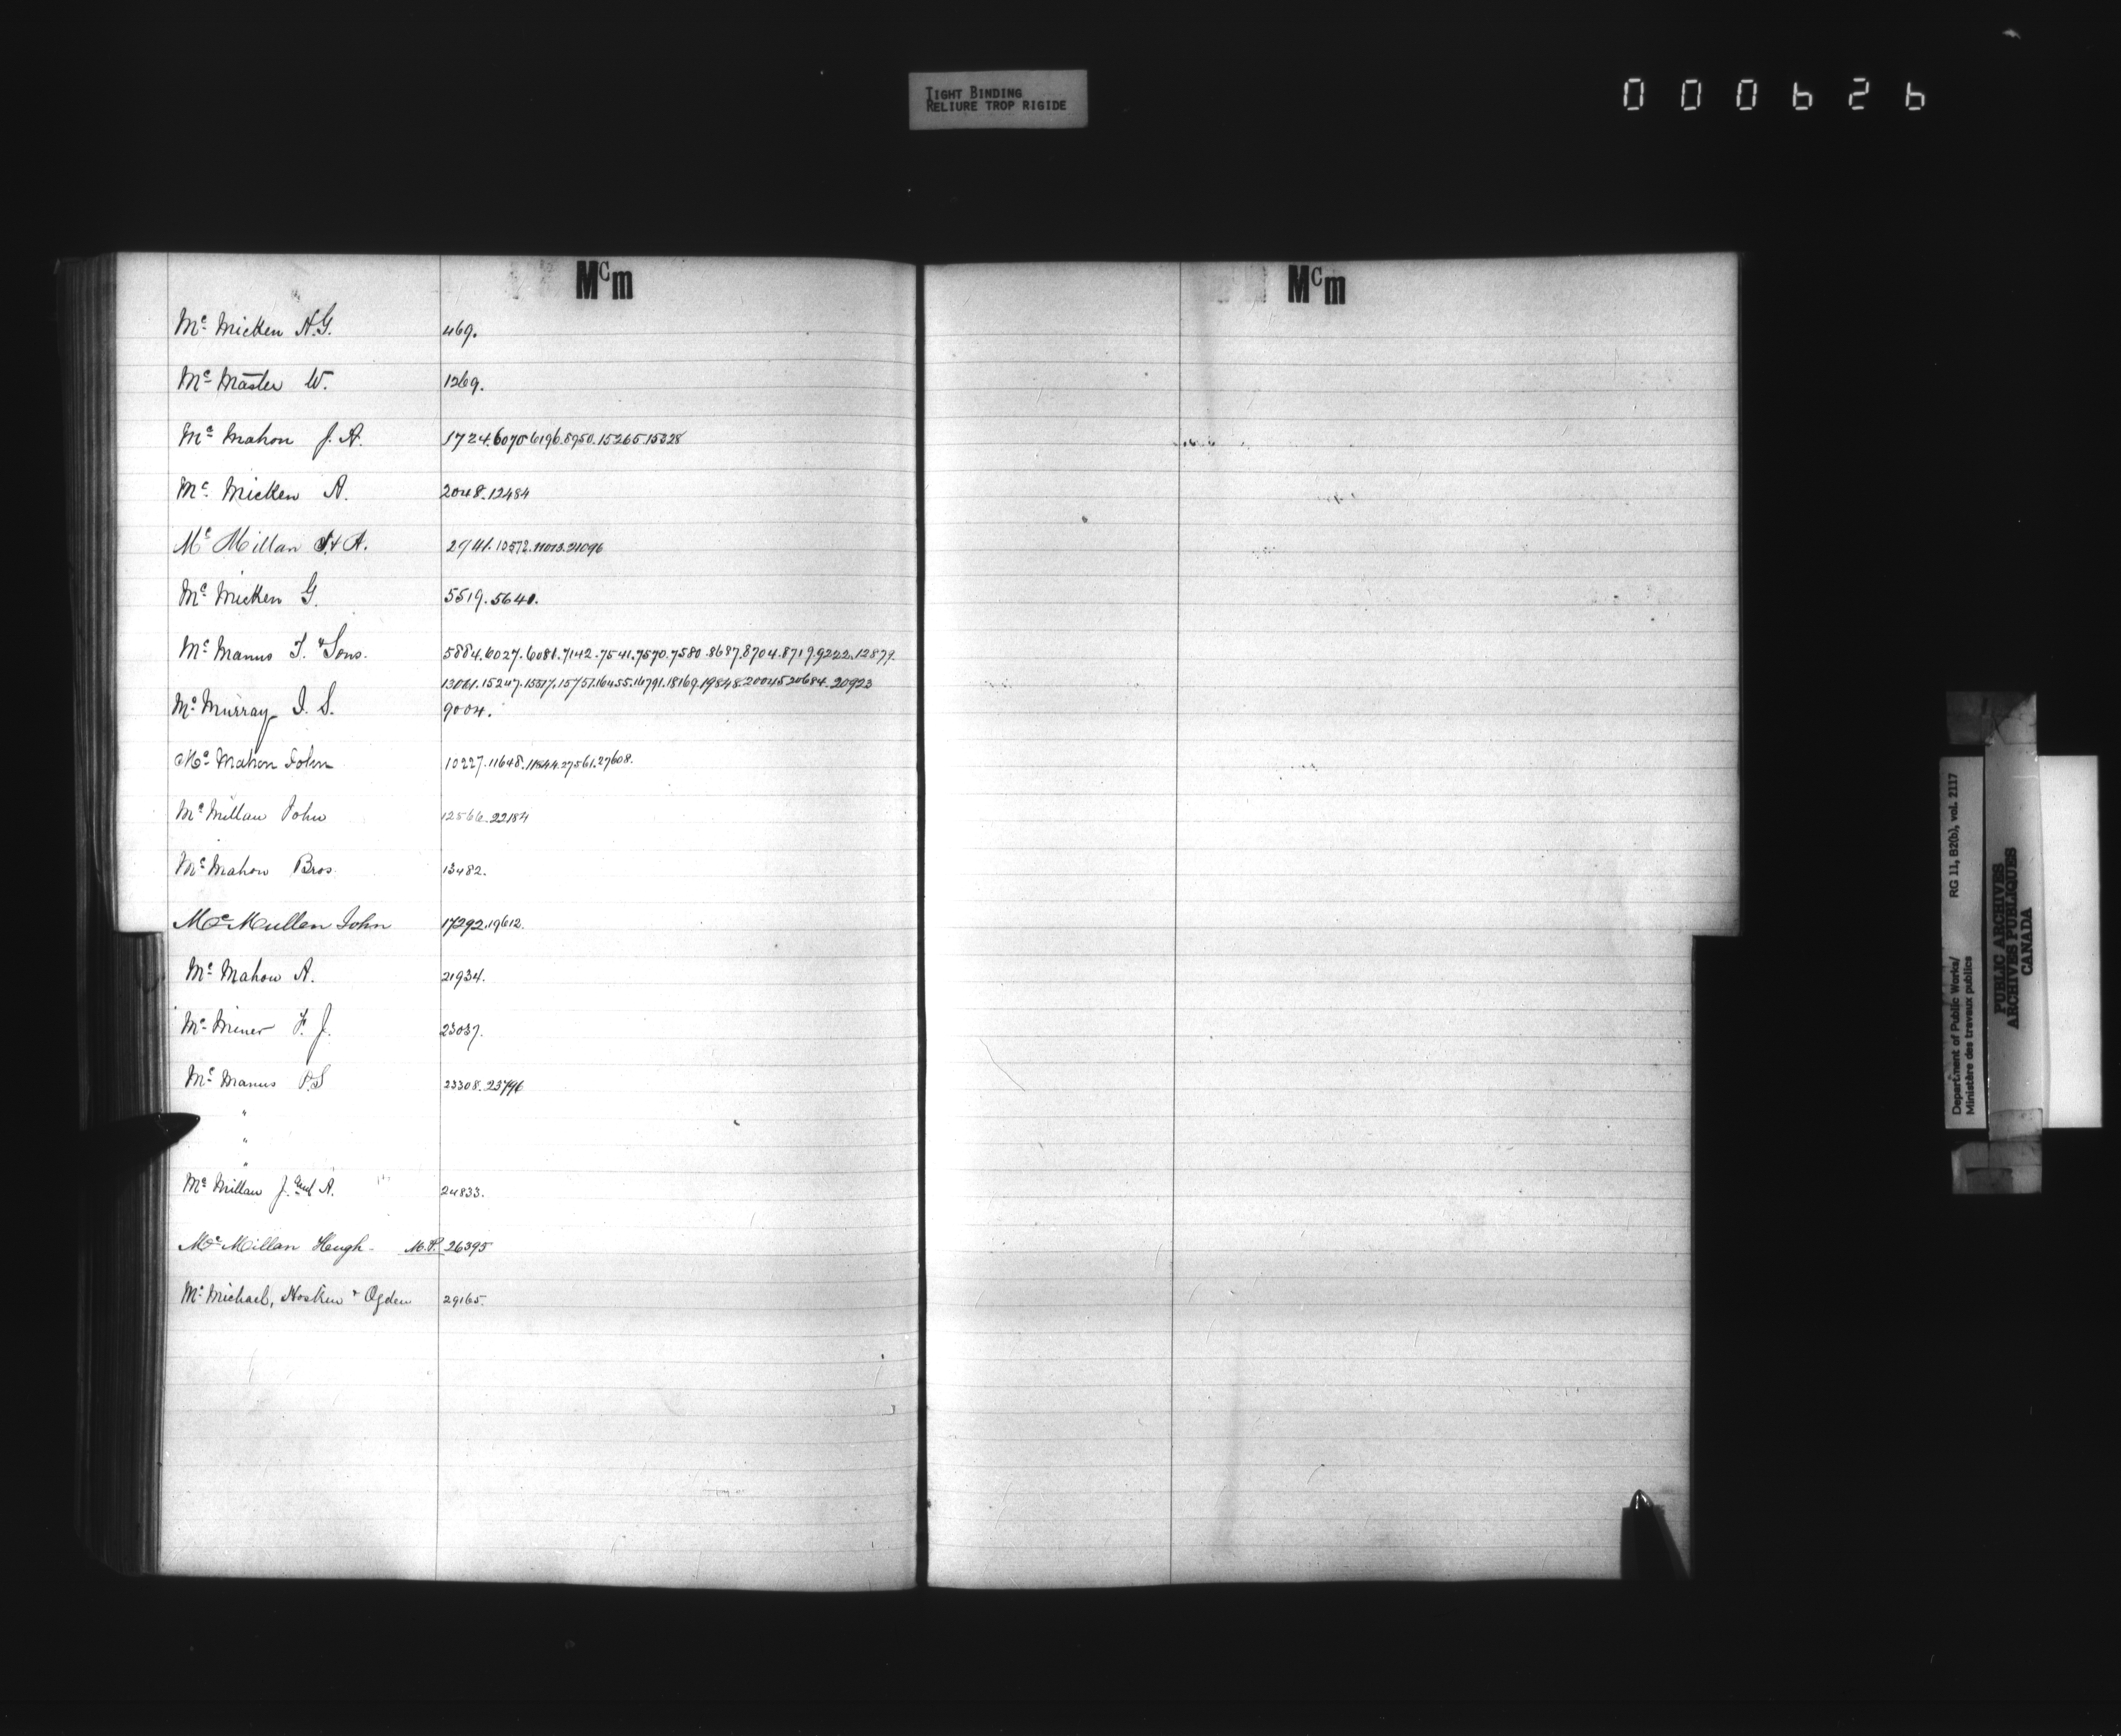 TIGHT BINDING
RELIURE TROP RIGIDE
000626
Mcm
Mc Micken A.G. 469.
Mc Master W. 1269.
Mc Mahon J. A. 1724.6075.6196.8950.15265.15328
Mc Micken A. 2048.12484
Mc Millan J. & A. 2941.10572.11013.21096
Mc Micken G. 5519.5640.
Mc Manus T. & Sons. 5884.6027.6081.7142.7541.7570.7580.8687.8704.8719.9222.12879.
13061.15247.15517.15751.16455.16791.18169.19848.20045.20684.20923
Mc Murray J. S. 9004.
Mc Mahon John 10227.11648.11844.27561.27608.
Mc Millan John 12566.22184
Mc Mahon Bros. 13482.
Mc Mullen John 17292.19612.
Mc Mahon A. 21934.
Mc Miner F. J. 23037.
Mc Manus P.S 23308.23796
"
"
"
Mc Millan J. and A. 24833.
Mc Millan Hugh - M.P. 26395
Mc Michael, Hosken & Ogden 29165.
Mcm
Department of Public Works/ RG 11, B2(b), vol. 2117
Ministère des travaux publics
PUBLIC ARCHIVES
ARCHIVES PUBLIQUES
CANADA